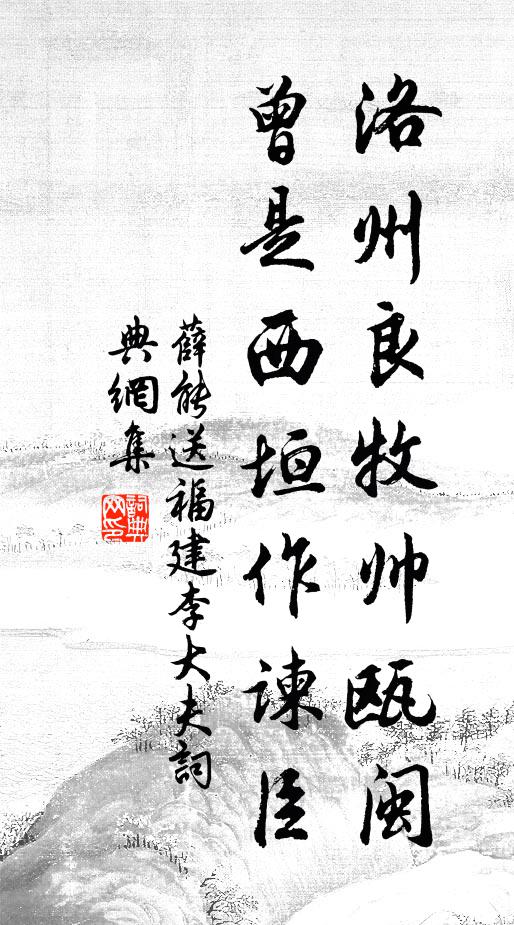 洛州良牧帅瓯闽
曾是西垣作谏臣
薛能送福建李大夫詞
典網集
詞典網印